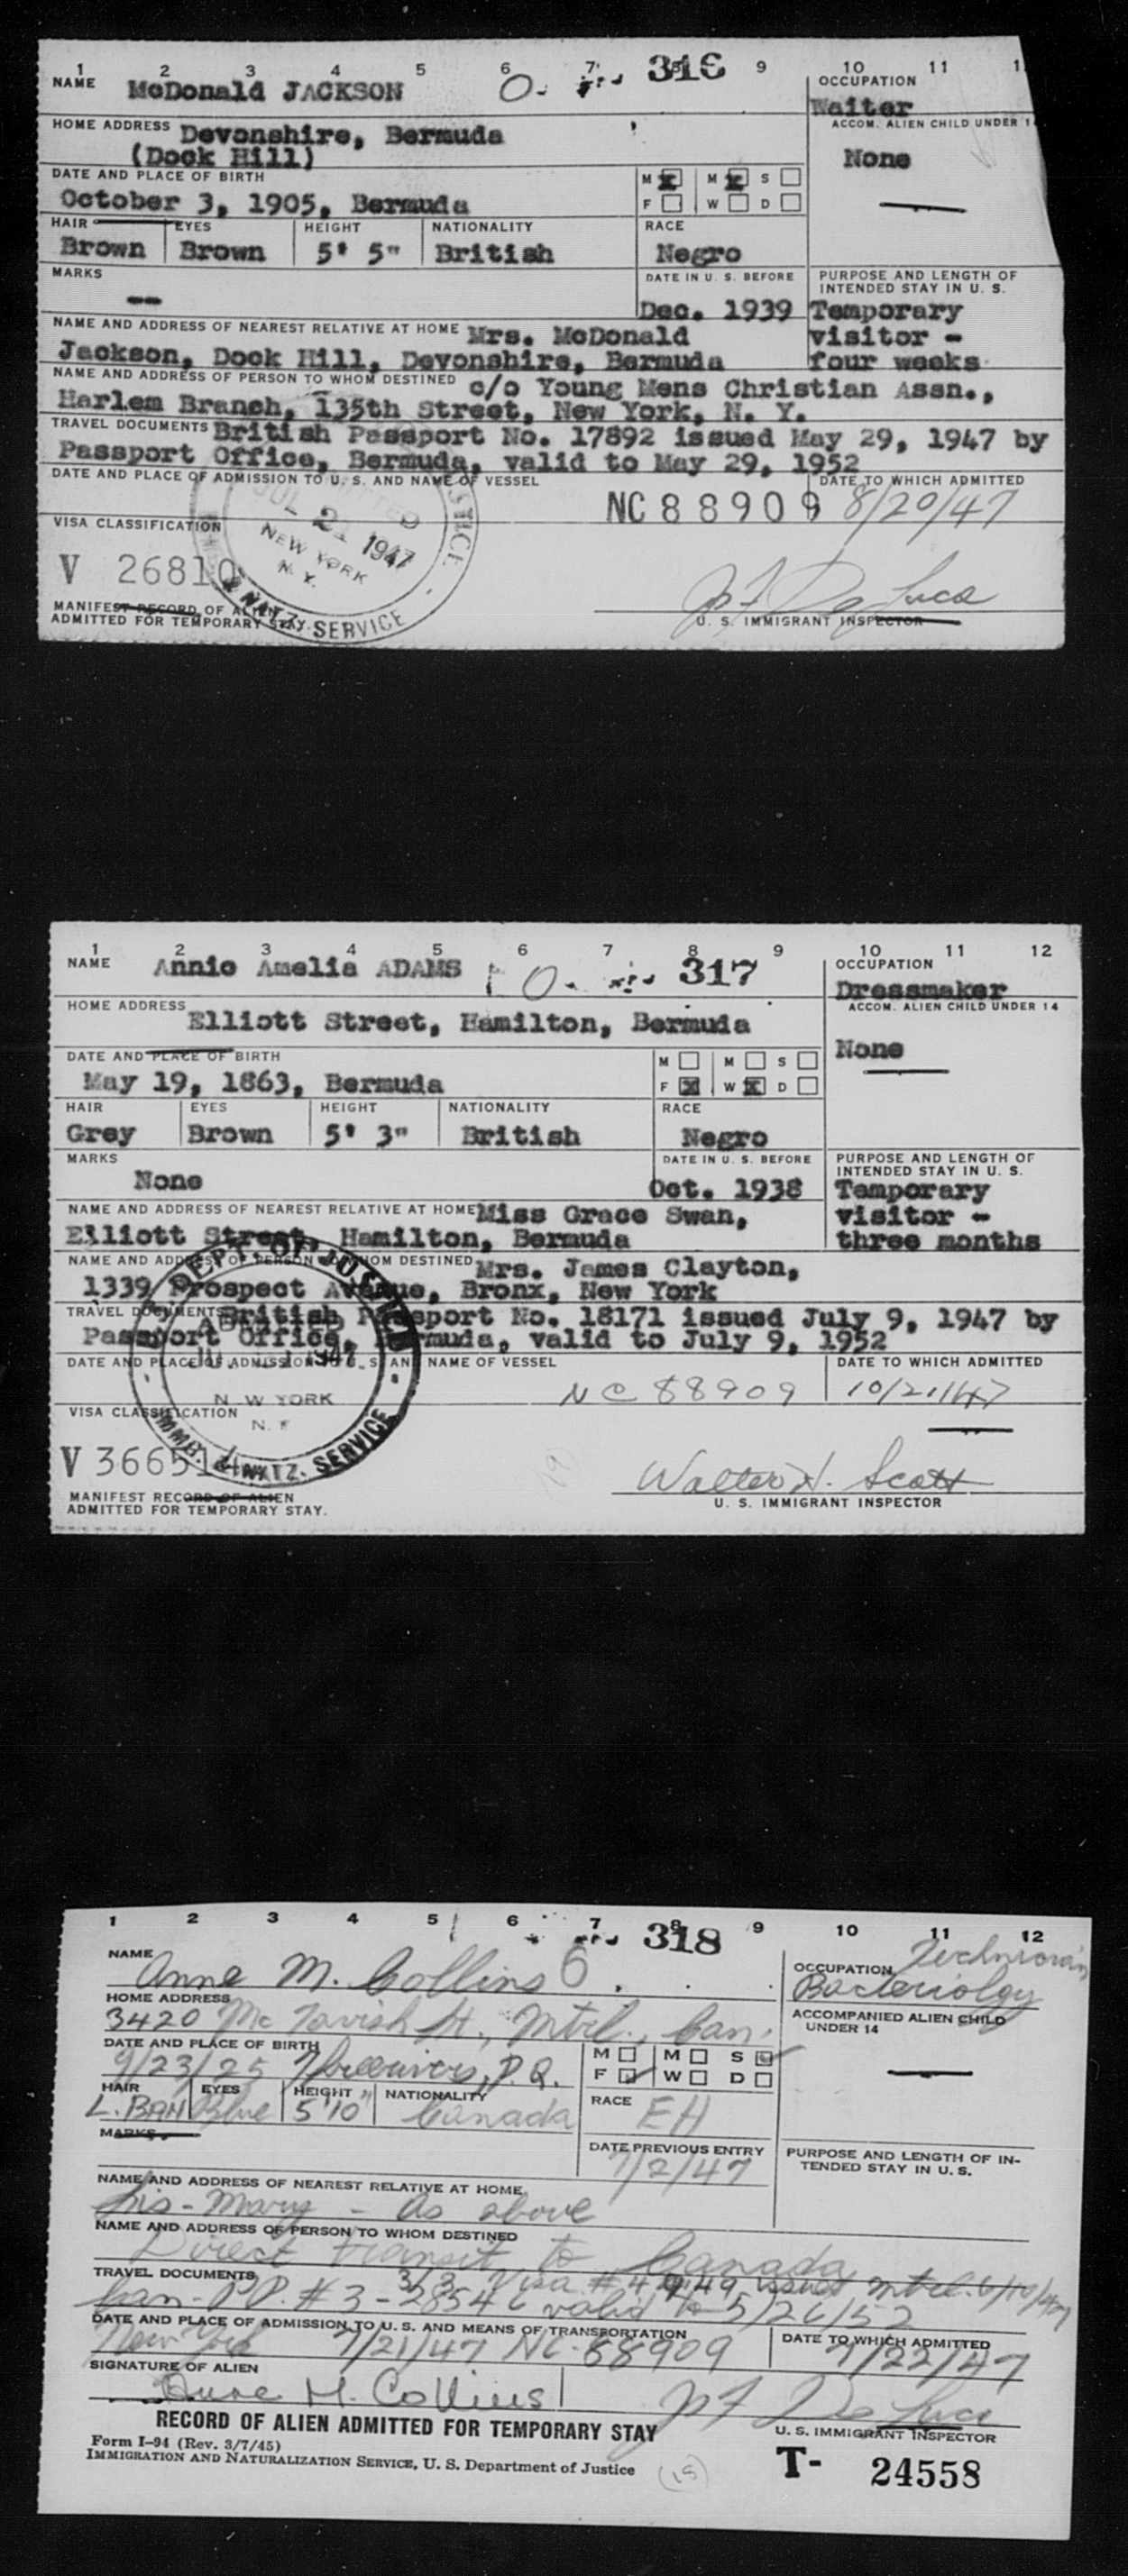 1 2 3 4 5 6 7 316 9 10 11 1
NAME McDonald JACKSON
OCCUPATION
Waiter
HOME ADDRESS Devonshire, Bermuda
(Dock Hill)
ACCOM. ALIEN CHILD UNDER 1
None
DATE AND PLACE OF BIRTH
October 3, 1905, Bermuda
M X M X S
F W D
HAIR EYES HEIGHT NATIONALITY RACE
Brown Brown 5' 5" British Negro
MARKS
--
DATE IN U. S. BEFORE
Dec. 1939
PURPOSE AND LENGTH OF
INTENDED STAY IN U. S.
Temporary
visitor -
four weeks
NAME AND ADDRESS OF NEAREST RELATIVE AT HOME Mrs. McDonald
Jackson, Dock Hill, Devonshire, Bermuda
NAME AND ADDRESS OF PERSON TO WHOM DESTINED c/o Young Mens Christian Assn.,
Harlem Branch, 135th Street, New York, N. Y.
TRAVEL DOCUMENTS British Passport No. 17892 issued May 29, 1947 by
Passport Office, Bermuda, valid to May 29, 1952
DATE AND PLACE OF ADMISSION TO U. S. AND NAME OF VESSEL
NC 88909
DATE TO WHICH ADMITTED
8/20/47
VISA CLASSIFICATION
V 26810
1947
NEW YORK
N. Y.
NATZ. SERVICE
MANIFEST RECORD OF ALIEN
ADMITTED FOR TEMPORARY STAY.
J F De Luca
U. S. IMMIGRANT INSPECTOR
1 2 3 4 5 6 7 8 9 10 11 12
317
NAME Annie Amelia ADAMS
OCCUPATION
Dressmaker
HOME ADDRESS Elliott Street, Hamilton, Bermuda
ACCOM. ALIEN CHILD UNDER 14
None
DATE AND PLACE OF BIRTH
May 19, 1863, Bermuda
M M S
F X W X D
HAIR EYES HEIGHT NATIONALITY RACE
Grey Brown 5' 3" British Negro
MARKS
None
DATE IN U. S. BEFORE
Oct. 1938
PURPOSE AND LENGTH OF
INTENDED STAY IN U. S.
Temporary
visitor -
three months
NAME AND ADDRESS OF NEAREST RELATIVE AT HOME Miss Grace Swan,
Elliott Street, Hamilton, Bermuda
NAME AND ADDRESS OF PERSON TO WHOM DESTINED Mrs. James Clayton,
1339 Prospect Avenue, Bronx, New York
TRAVEL DOCUMENTS British Passport No. 18171 issued July 9, 1947 by
Passport Office, Bermuda, valid to July 9, 1952
DATE AND PLACE OF ADMISSION TO U. S. AND NAME OF VESSEL
NC 88909
DATE TO WHICH ADMITTED
10/21/47
DEPT. OF JUSTICE
N W YORK
N. Y.
IMMG. & NATZ. SERVICE
VISA CLASSIFICATION
V 366514
MANIFEST RECORD OF ALIEN
ADMITTED FOR TEMPORARY STAY.
Walter H. Scott
U. S. IMMIGRANT INSPECTOR
1 2 3 4 5 6 7 8 9 10 11 12
318
NAME Anne M. Collins
OCCUPATION Technician
Bacteriology
HOME ADDRESS
3420 McTavish St., Mtrl., Can.
ACCOMPANIED ALIEN CHILD
UNDER 14
DATE AND PLACE OF BIRTH
9/23/25 Threerivers, P.Q.
M M S
F W D
HAIR EYES HEIGHT NATIONALITY RACE
L. BRN Blue 5'10" Canada EH
MARKS
DATE PREVIOUS ENTRY
7/2/47
PURPOSE AND LENGTH OF IN-
TENDED STAY IN U. S.
NAME AND ADDRESS OF NEAREST RELATIVE AT HOME
Sis - Mary - As above
NAME AND ADDRESS OF PERSON TO WHOM DESTINED
Direct transit to Canada
TRAVEL DOCUMENTS
Can. P.P. # 3-28546 valid to 5/26/52
DATE AND PLACE OF ADMISSION TO U. S. AND MEANS OF TRANSPORTATION
New York 7/21/47 NC-88909
DATE TO WHICH ADMITTED
7/22/47
SIGNATURE OF ALIEN
Anne M. Collins
J F De Luca
U. S. IMMIGRANT INSPECTOR
RECORD OF ALIEN ADMITTED FOR TEMPORARY STAY
Form I-94 (Rev. 3/7/45)
IMMIGRATION AND NATURALIZATION SERVICE, U. S. Department of Justice
(15)
T- 24558